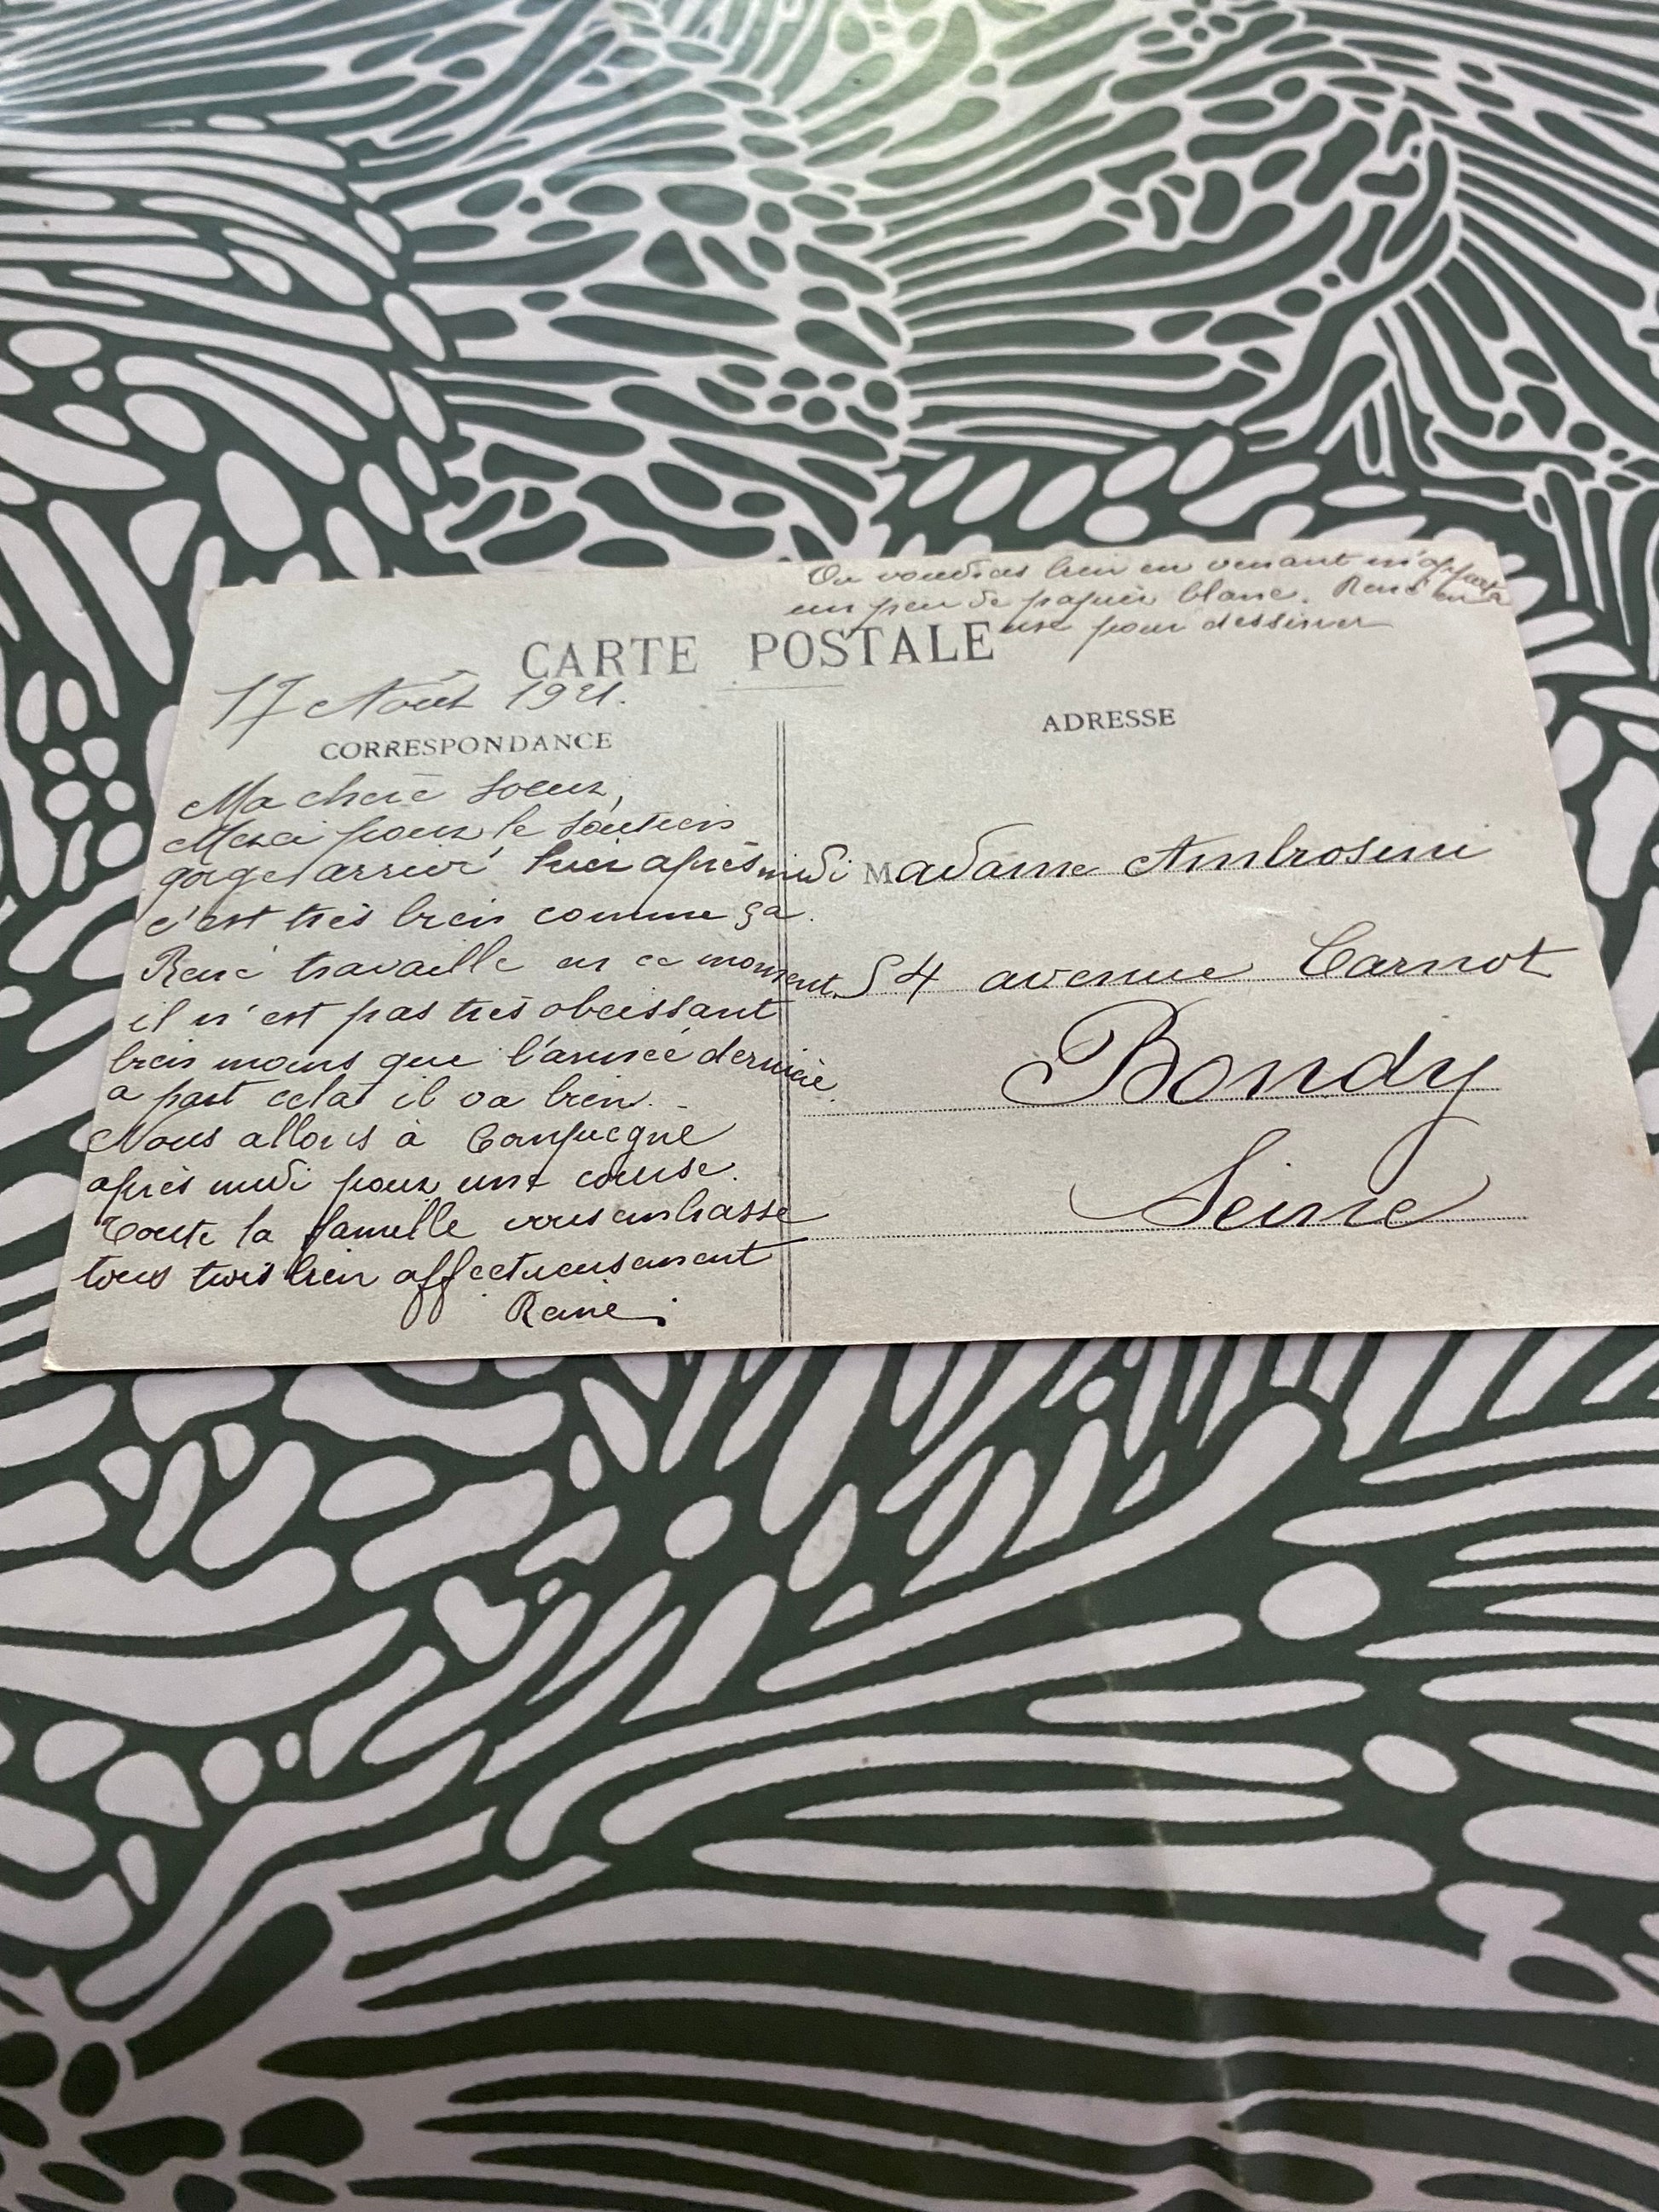 Tu voudras bien en venant m'apporter
un peu de papier blanc. René en a
usé pour dessiner
CARTE POSTALE
17 Août 1921.
CORRESPONDANCE
Ma chère Soeur,
Merci pour le soutien
gorge arrivé hier après midi
c'est très bien comme ça.
René travaille en ce moment.
il n'est pas très obeissant
bien moins que l'année dernière.
a part cela il va bien.
Nous allons à Compiegne
après midi pour une course.
Toute la famille vous embrasse
tous trois bien affectueusement
ADRESSE
Madame Ambrosini
54 avenue Carnot
Bondy
Seine